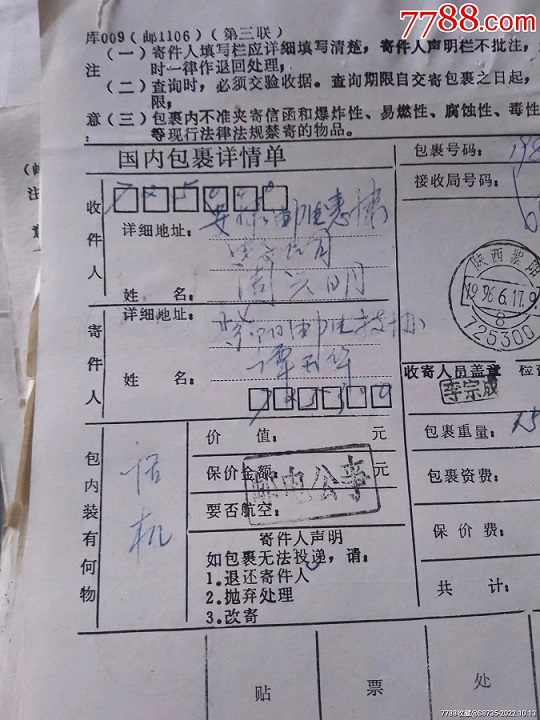 7788.com
库009(邮1106)(第三联)
(一)寄件人填写栏应详细填写清楚,寄件人声明栏不批注,
注 时一律作退回处理,
(二)查询时,必须交验收据。查询期限自交寄包裹之日起,
限,
意(三)包裹内不准夹寄信函和爆炸性、易燃性、腐蚀性、毒性
等现行法律法规禁寄的物品。
国内包裹详情单
包裹号码:
接收局号码:
收件人
详细地址:
姓 名: 周兴明
寄件人
详细地址:
姓 名:
陕西紫阳
1996.6.17.9
8
725300
收寄人员盖章
李宗成
包内装有何物
话机
价 值: 元
保价金额: 元
要否航空:
邮电公事
寄件人声明
如包裹无法投递,请:
1.退还寄件人
2.抛弃处理
3.改寄
包裹重量:
包裹资费:
保 价 费:
共 计:
贴 票 处
7788收藏@S8735 2022.10.13